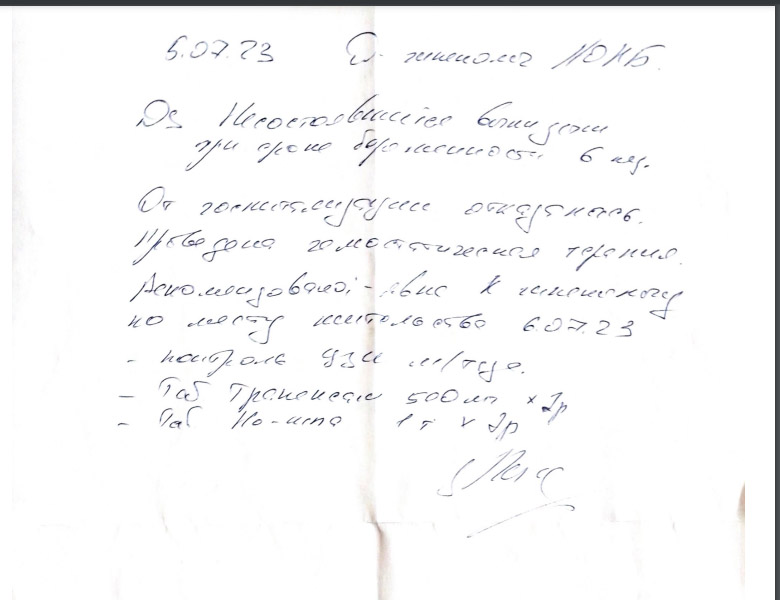 6.07.23 гинеколог НОКБ.
Ds Несостоявшийся выкидыш
при сроке беременности 6 нед.
От госпитализации отказалась.
Проведена гемостатическая терапия.
Рекомендовано: - явка к гинекологу
по месту жительства 6.07.23
- контроль УЗИ м/таза.
- Таб Транексам 500 мг х 3р
- Таб Но-шпа 1 т х 3р